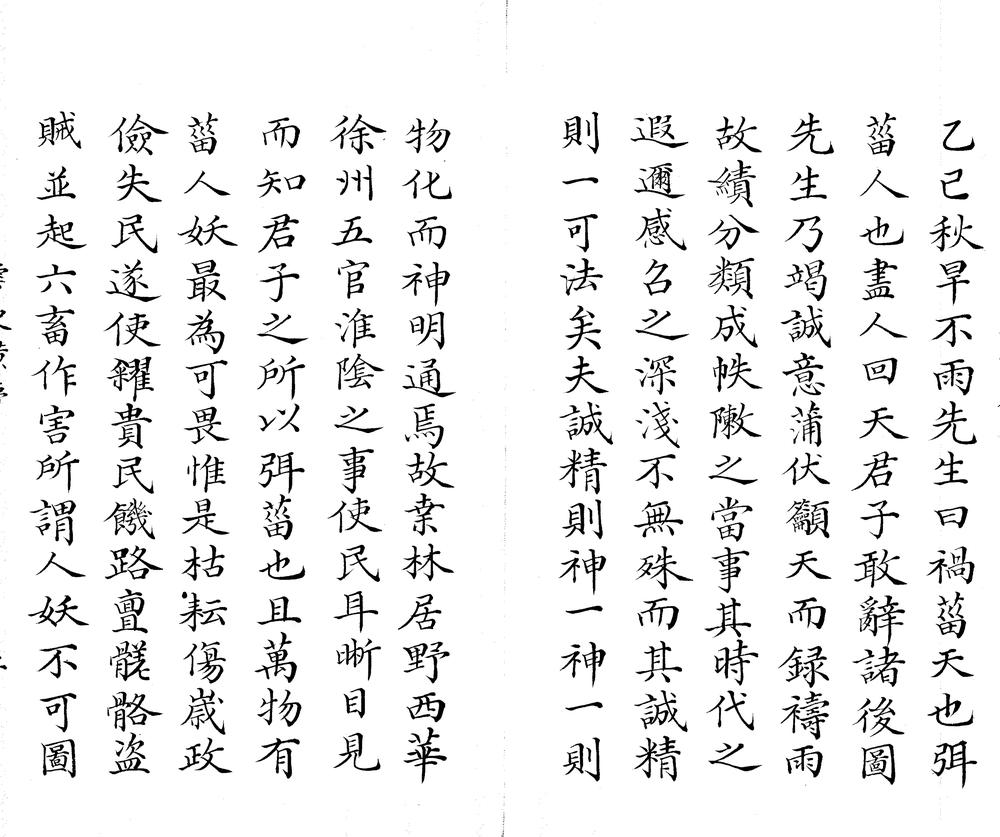 乙巳秋旱不雨先生曰禍菑天也弭
菑人也盡人回天君子敢辭諸後圖
先生乃竭誠意蒲伏籲天而録禱雨
故績分類成帙敶之當事其時代之
遐邇感召之深淺不無殊而其誠精
則一可法矣夫誠精則神一神一則
物化而神明通焉故桒林居野西華
徐州五官淮陰之事使民耳晰目見
而知君子之所以弭菑也且萬物有
菑人妖最為可畏惟是枯耘傷嵗政
儉失民遂使糴貴民饑路亶髊骼盜
賊並起六畜作害所謂人妖不可圖